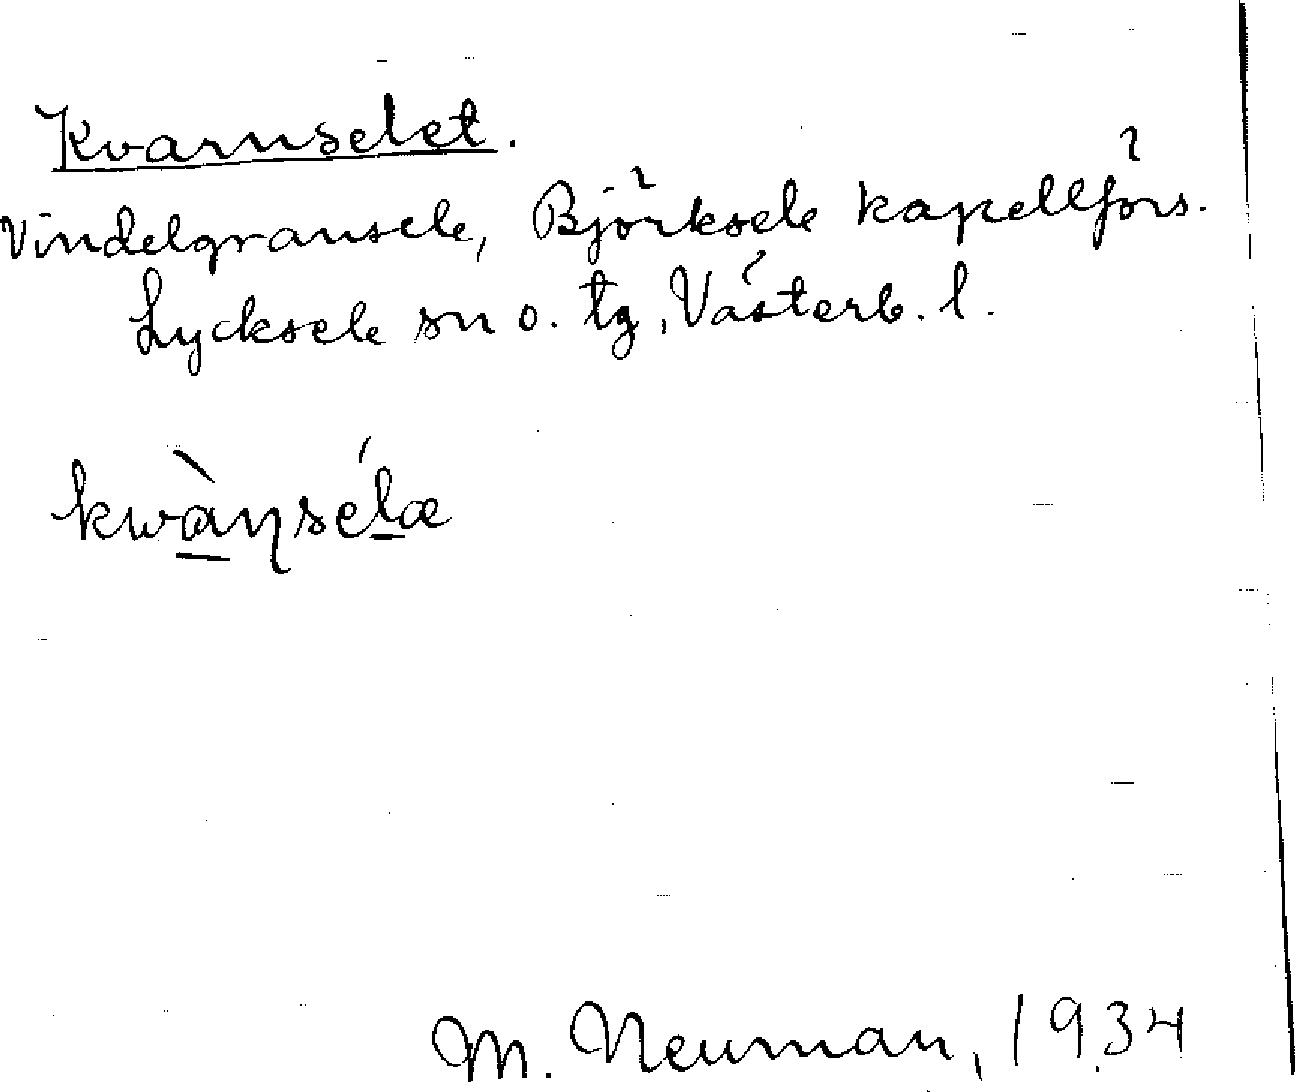 Kvarnselet.
Vindelgransele, Björksele kapellförs.
Lycksele sn o. tg, Västerb. l.
kwàɳséla
M. Neuman, 1934